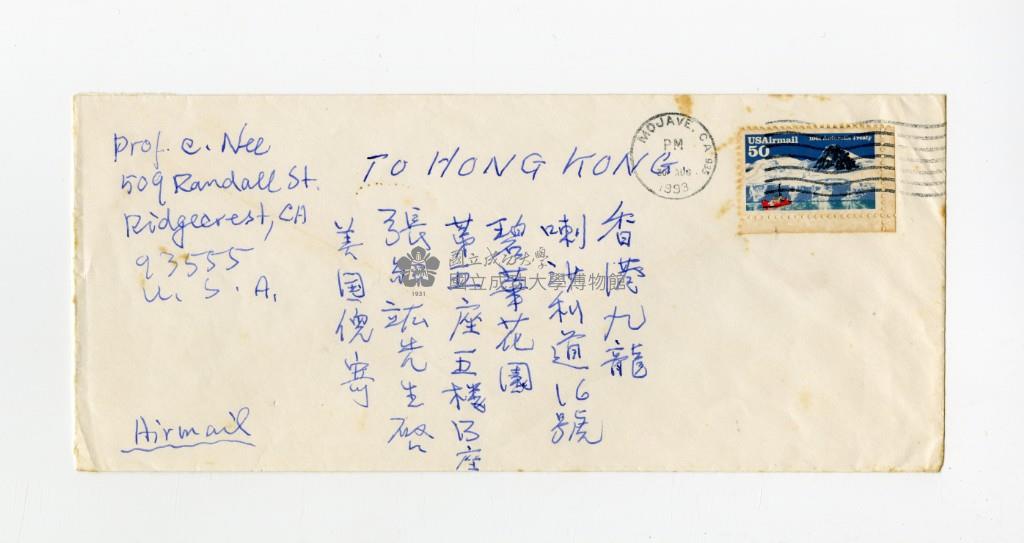 Prof. C. Nee
509 Randall St.
Ridgecrest, CA
93555
U. S. A.
TO HONG KONG
MOJAVE, CA 935
PM
AUG
1993
USAirmail
50
Antarctic Treaty
香港九龍
喇沙利道16號
碧華花園
第五座五樓B座
張 竑先生啓
美国倪寄
Airmail
國立成功大學
國立成功大學博物館
1931